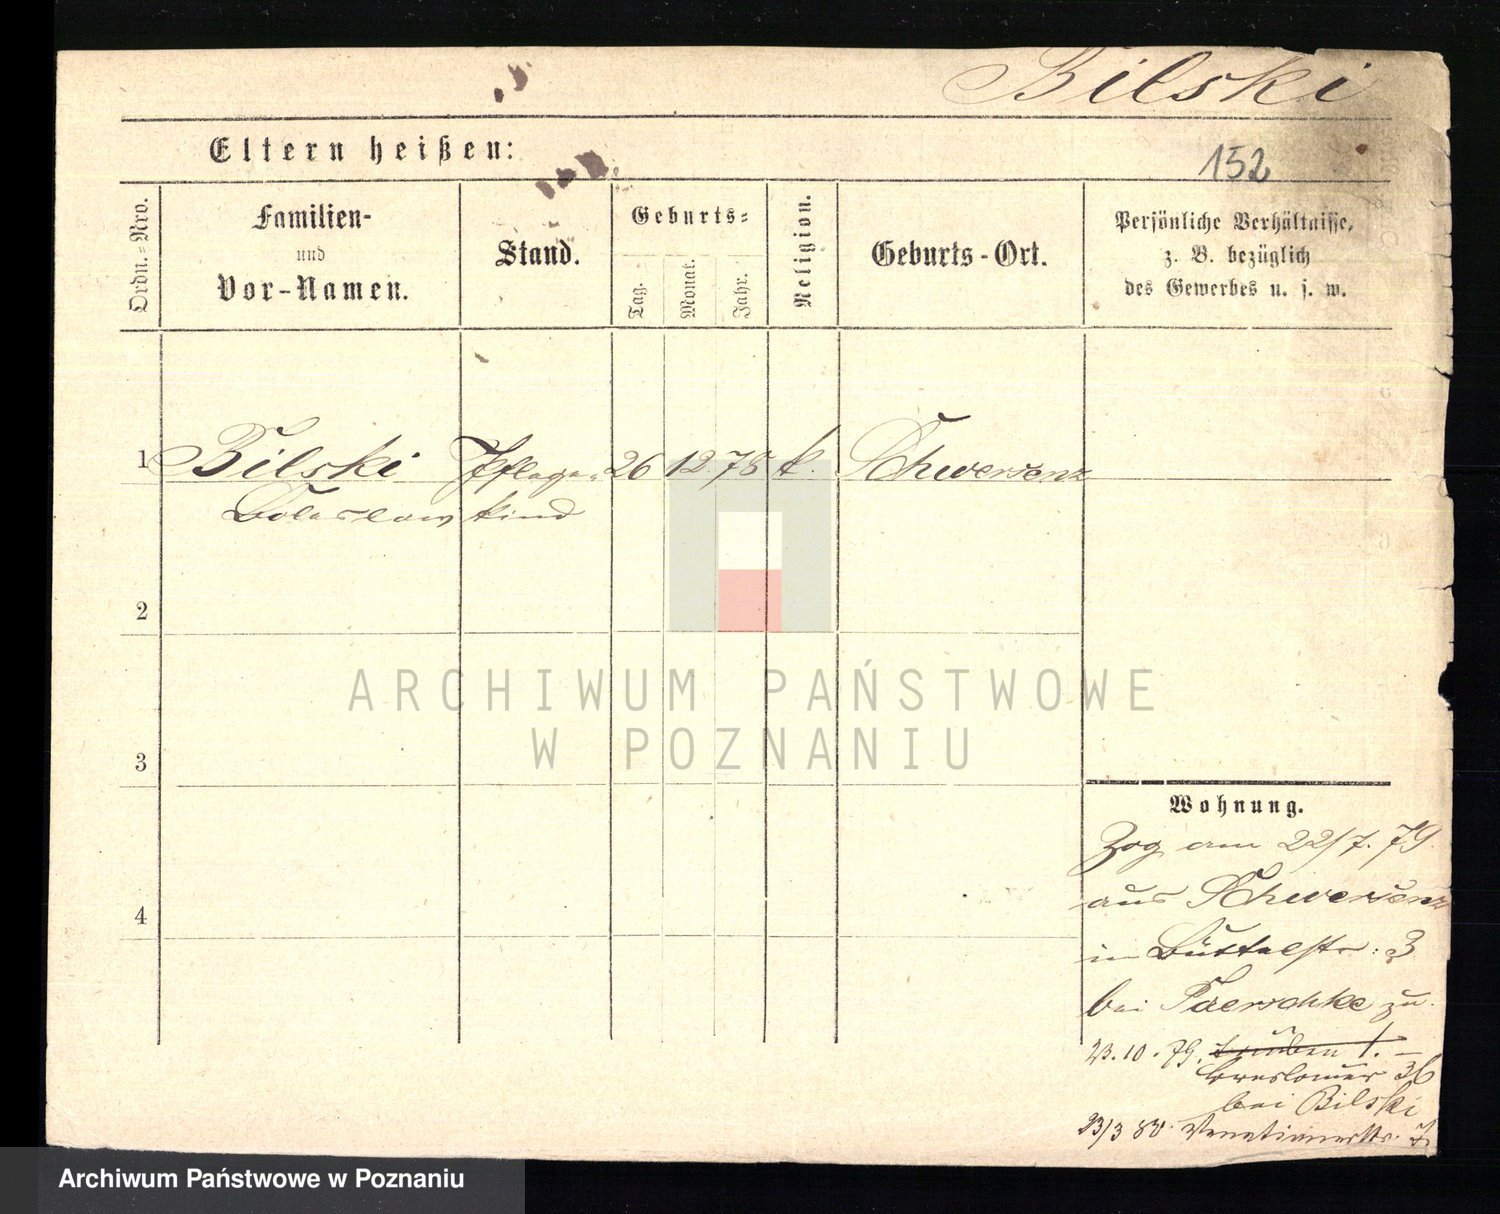 Bilski
Eltern heißen:
152
Ordn.-Nro.
Familien-
und
Vor-Namen.
Stand.
Geburts-
Tag.
Monat.
Jahr.
Religion.
Geburts-Ort.
Persönliche Verhältnisse,
z. B. bezüglich
des Gewerbes u. s. w.
1 Bilski Pflege- 26 12 78 k. Schwersenz
Boleslaw kind
2
3
4
ARCHIWUM PAŃSTWOWE
W POZNANIU
Wohnung.
Zog am 22/7. 79.
aus Schwersenz
in Büttelstr: 3
bei Paerschke zu.
23.10.79.
Breslauer 36
bei Bilski
23/3 80. Venetianerstr. 7
Archiwum Państwowe w Poznaniu